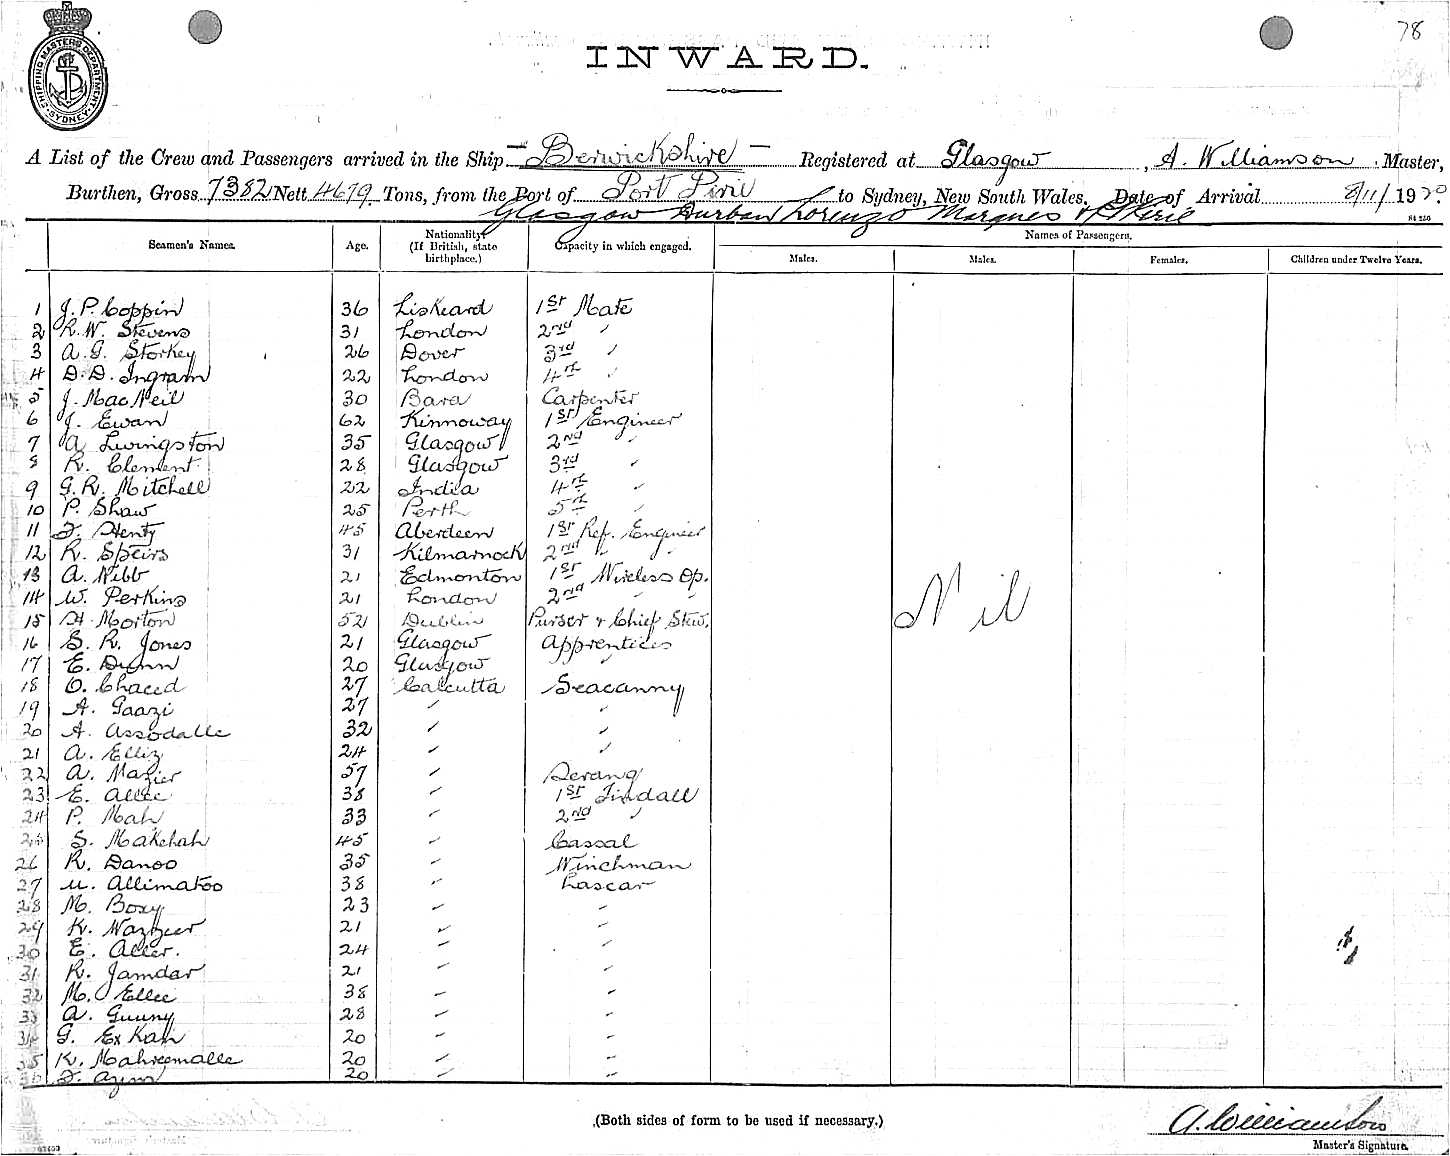 78
SHIPPING MASTERS DEPARTMENT
SYDNEY
INWARD.
A List of the Crew and Passengers arrived in the Ship Berwickshire Registered at Glasgow, A. Williamson Master,
Burthen, Gross 7382 Nett 4679 Tons, from the Port of Port Pirie to Sydney, New South Wales, Date of Arrival 8/11/1920.
Glasgow Durban Lorenzo Marques & Pt Pirie
Seamen's Names. Age. Nationality (If British, state birthplace.) Capacity in which engaged. Names of Passengers.
Males. Males. Females. Children under Twelve Years.
1 J. P. Coppin 36 Liskeard 1st Mate
2 R. W. Stevens 31 London 2nd "
3 A. G. Storkey 26 Dover 3rd "
4 D. D. Ingram 22 London 4th "
5 J. MacNeil 30 Bara Carpenter
6 J. Ewan 62 Kinnoway 1st Engineer
7 A Livingston 35 Glasgow 2nd "
8 R. Clement 28 Glasgow 3rd "
9 G. R. Mitchell 22 India 4th "
10 P. Shaw 25 Perth 5th "
11 F. Henty 45 Aberdeen 1st Ref. Engineer
12 R. Speirs 31 Kilmarnock 2nd " "
13 A. Nibb 21 Edmonton 1st Wireless Op.
14 W. Perkins 21 London 2nd " "
15 H. Morton 52 Dublin Purser & Chief Stew.
16 S. R. Jones 21 Glasgow Apprentices
17 E. Dunn 20 Glasgow "
18 O. Chaced 27 Calcutta Seacanny
19 A. Gaazi 27 " "
20 A. Assodalle 32 " "
21 A. Elliz 24 " "
22 A. Mazier 57 " Serang
23 E. Allee 38 " 1st Tindall
24 P. Mah 33 " 2nd "
25 S. Makehah 45 " Cassal
26 R. Danoo 35 " Winchman
27 U. Allimatoo 38 " Lascar
28 M. Boxy 23 " "
29 K. Wazzeer 21 " "
30 E. Aller. 24 " "
31 R. Jamdar 21 " "
32 M. Ellee 38 " "
33 A. Guuny 28 " "
34 G. Ex Kah 20 " "
35 K. Mahreemalle 20 " "
36 F. Azim 20 " "
Nil
(Both sides of form to be used if necessary.)
A. Williamson
Master's Signature.